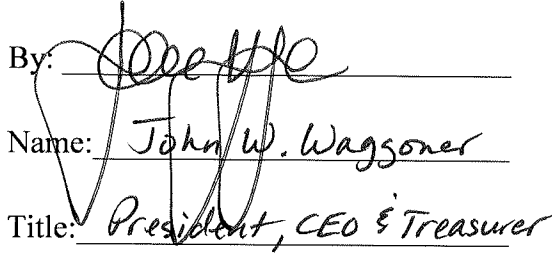 By:
Name: John W. Waggoner
Title: President, CEO & Treasurer